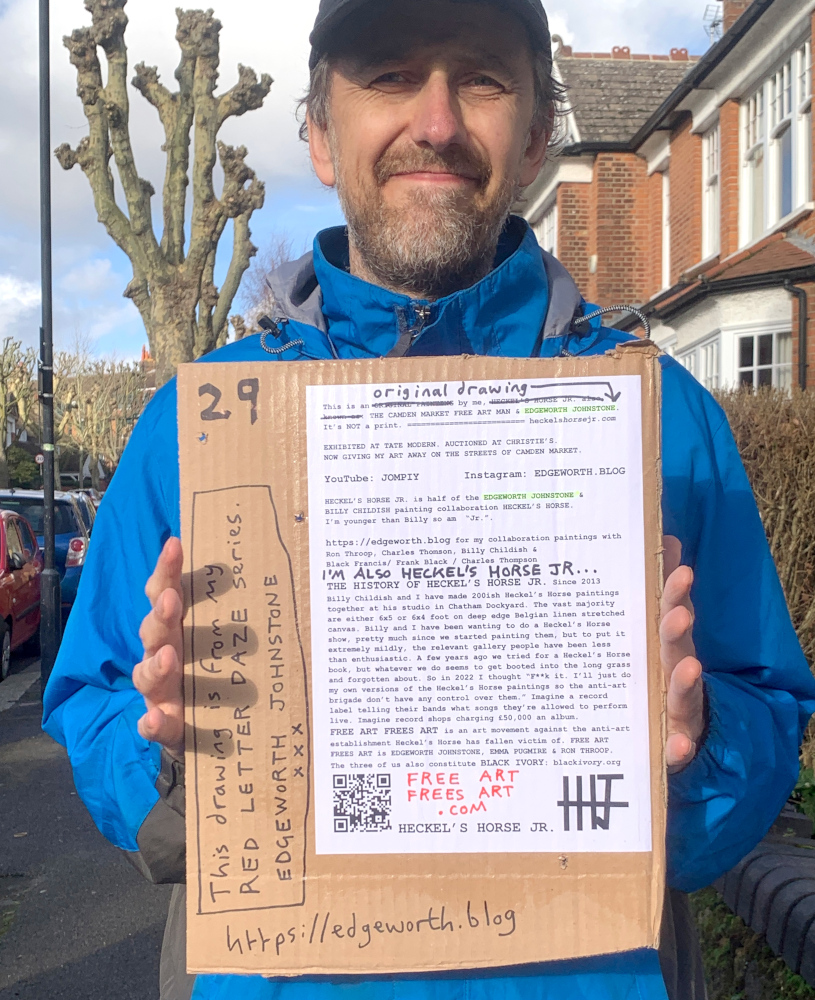 29
This drawing is from my
RED LETTER DAZE series.
EDGEWORTH JOHNSTONE
xxx
https://edgeworth.blog
original drawing
This is an ORIGINAL PAINTING by me, HECKEL'S HORSE JR. also
known as THE CAMDEN MARKET FREE ART MAN & EDGEWORTH JOHNSTONE.
It's NOT a print. ======================== heckelshorsejr.com
EXHIBITED AT TATE MODERN. AUCTIONED AT CHRISTIE'S.
NOW GIVING MY ART AWAY ON THE STREETS OF CAMDEN MARKET.
YouTube: JOMPIY Instagram: EDGEWORTH.BLOG
HECKEL'S HORSE JR. is half of the EDGEWORTH JOHNSTONE &
BILLY CHILDISH painting collaboration HECKEL'S HORSE.
I'm younger than Billy so am "Jr.".
https://edgeworth.blog for my collaboration paintings with
Ron Throop, Charles Thomson, Billy Childish &
Black Francis/ Frank Black / Charles Thompson
I'M ALSO HECKEL'S HORSE JR...
THE HISTORY OF HECKEL'S HORSE JR. Since 2013
Billy Childish and I have made 200ish Heckel's Horse paintings
together at his studio in Chatham Dockyard. The vast majority
are either 6x5 or 6x4 foot on deep edge Belgian linen stretched
canvas. Billy and I have been wanting to do a Heckel's Horse
show, pretty much since we started painting them, but to put it
extremely mildly, the relevant gallery people have been less
than enthusiastic. A few years ago we tried for a Heckel's Horse
book, but whatever we do seems to get booted into the long grass
and forgotten about. So in 2022 I thought "F**k it. I'll just do
my own versions of the Heckel's Horse paintings so the anti-art
brigade don't have any control over them." Imagine a record
label telling their bands what songs they're allowed to perform
live. Imagine record shops charging £50,000 an album.
FREE ART FREES ART is an art movement against the anti-art
establishment Heckel's Horse has fallen victim of. FREE ART
FREES ART is EDGEWORTH JOHNSTONE, EMMA PUGMIRE & RON THROOP.
The three of us also constitute BLACK IVORY: blackivory.org
FREE ART
FREES ART
.COM
HECKEL'S HORSE JR.